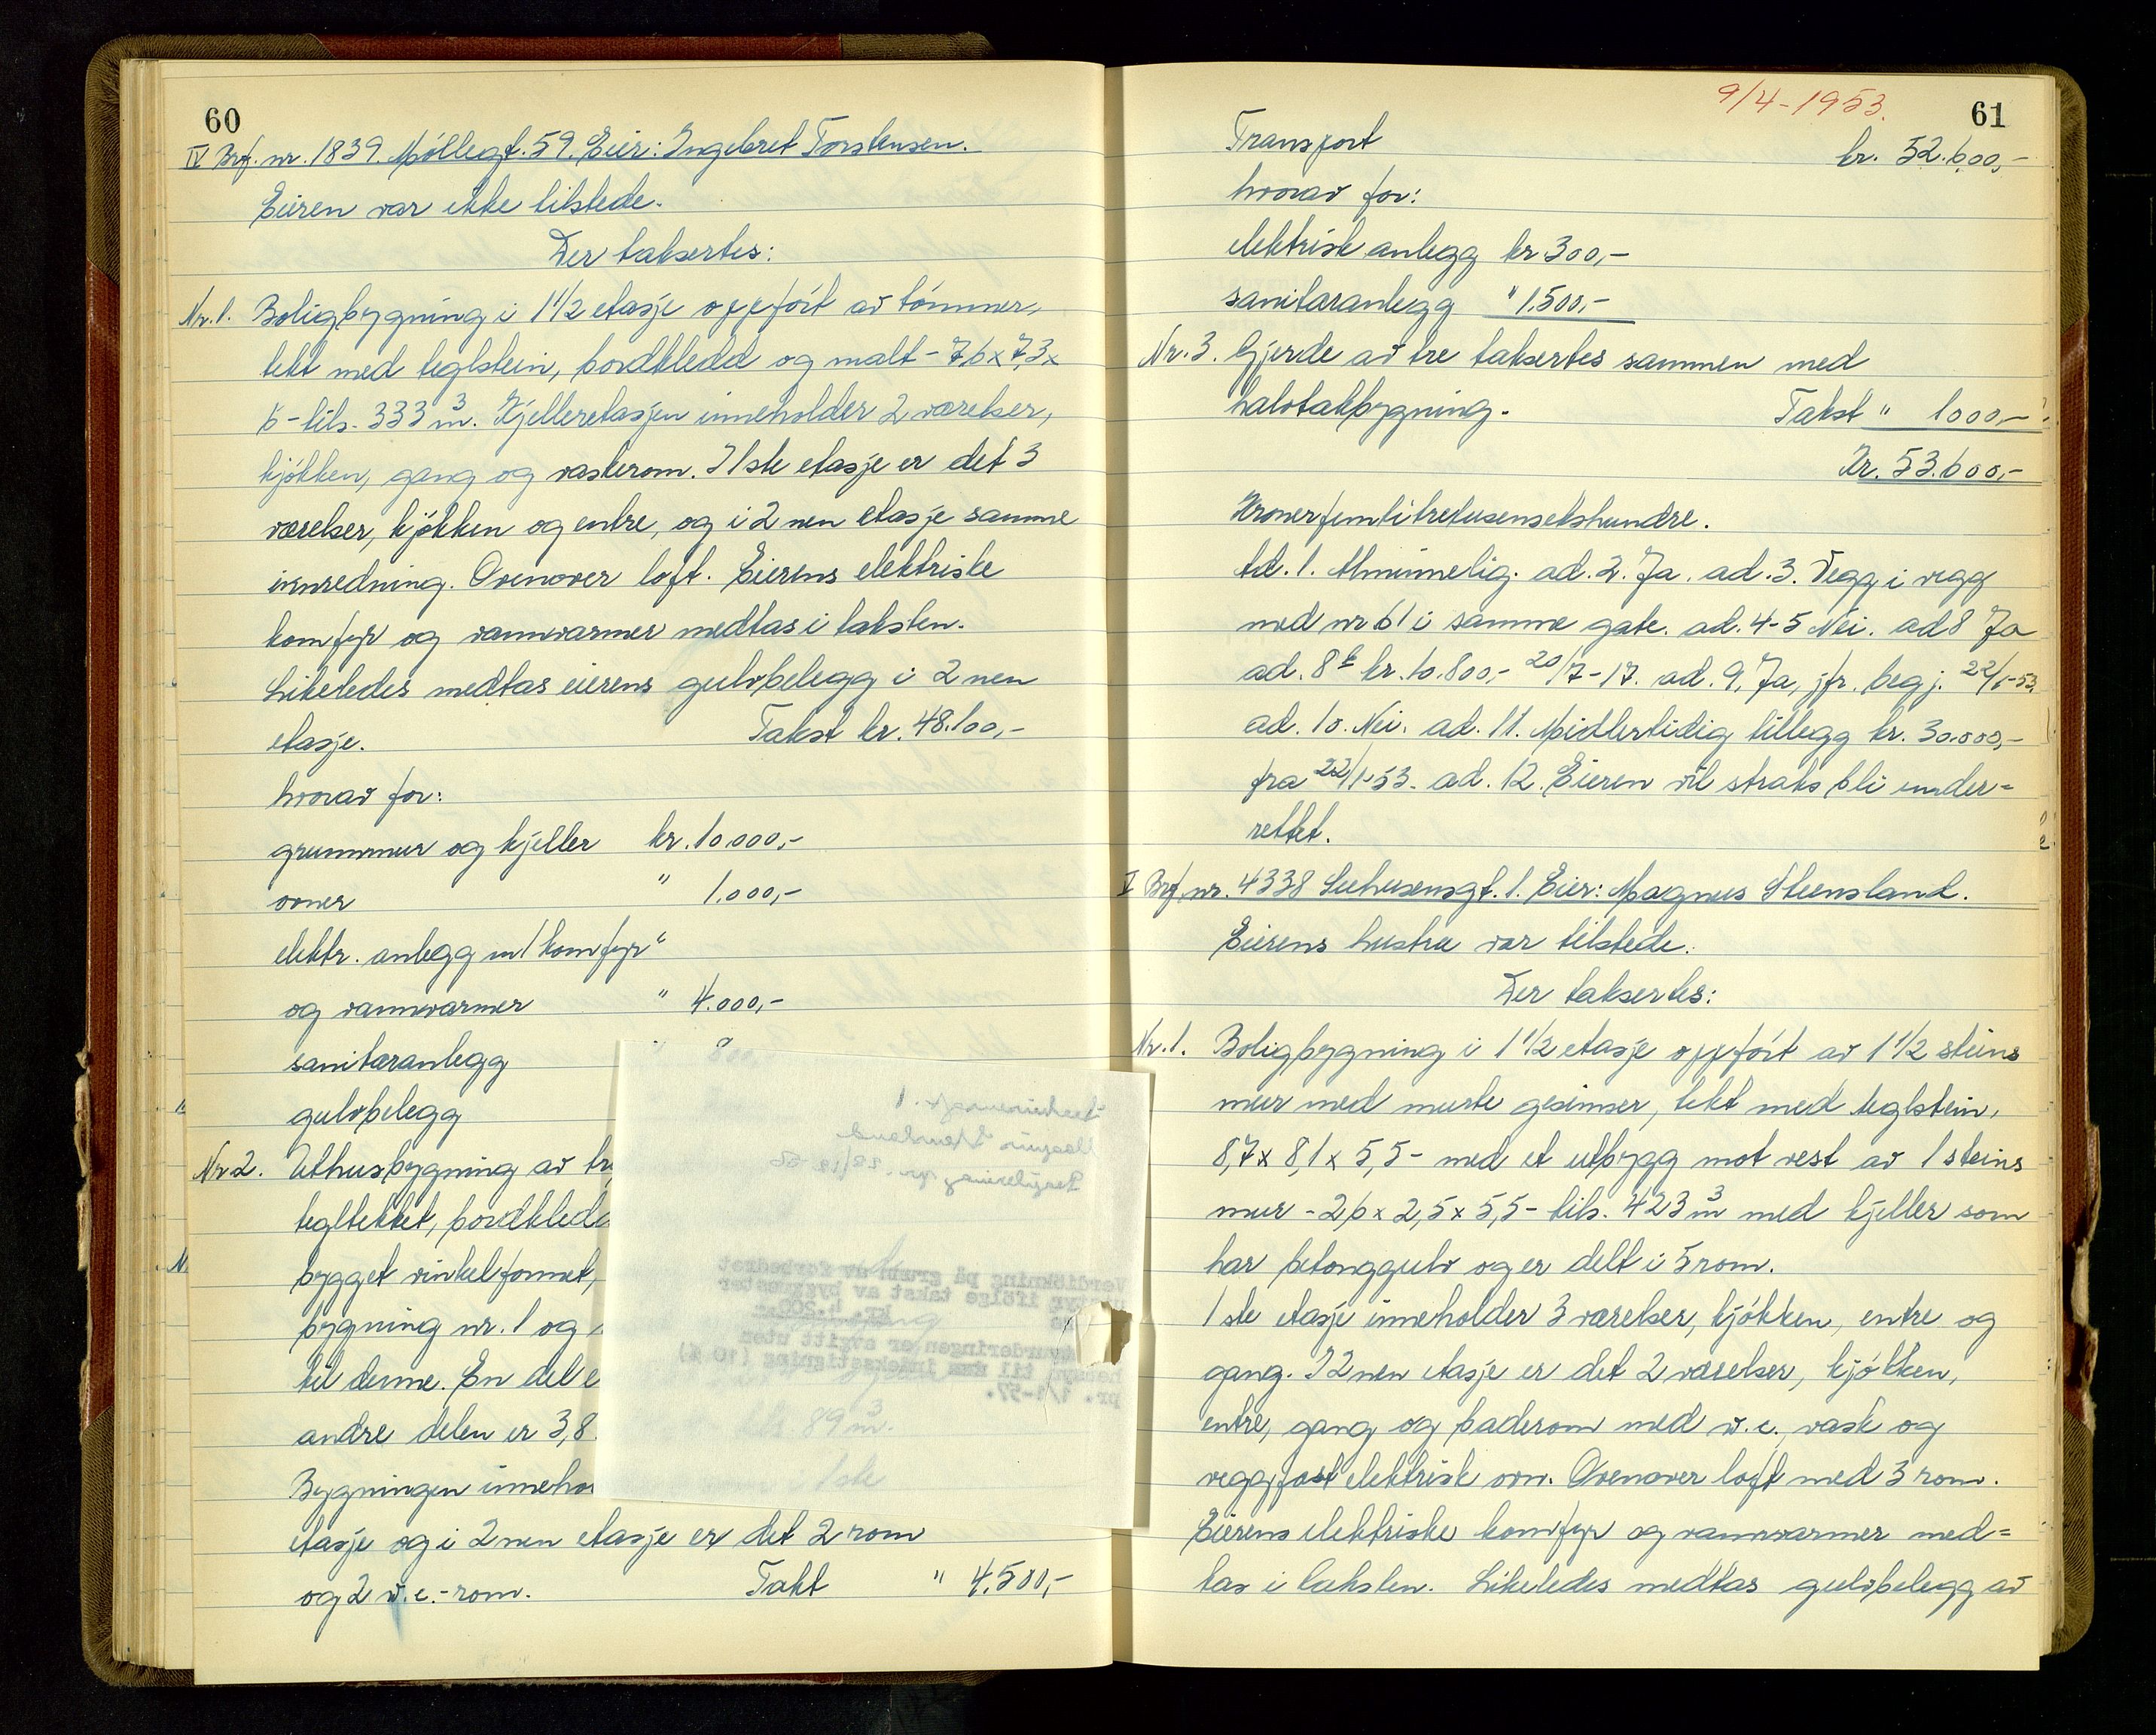 60
IV Brf. nr. 1839. Møllegt. 59. Eier: Ingebret Torstensen.
Eieren var ikke tilstede.
Der taksertes:
Nr. 1. Boligbygning i 1 1/2 etasje oppført av tømmer,
tekt med teglstein, bordkledd og malt - 7,6 x 7,3 x
6 - tils. 333 m³. Kjelleretasjen inneholder 2 værelser,
kjøkken, gang og vaskerom. I 1ste etasje er det 3
værelser, kjøkken og entre, og i 2nen etasje samme
innredning. Ovenover loft. Eierens elektriske
komfyr og vannvarmer medtas i taksten.
Likeledes medtas eierens gulvbelegg i 2nen
etasje. Takst kr. 48.100,-
hvorav for:
grunnmur og kjeller kr. 10.000,-
ovner " 1.000,-
elektr. anlegg m/komfyr "
og vannvarmer " 4.000,-
sanitæranlegg " "
gulvbelegg
Nr 2. Uthusbygning av tr
tegltekket, bordkledd
bygget vinkelformet,
bygning nr. 1 og
til denne. En del e
andre delen er 3,8
Bygningen inneho
etasje og i 2nen etasje er det 2 rom
og 2 w.c.-rom. Takt " 4.500,-
800,-
Magnus Steensland
Verdiökning på grunn av forbedret
utstyr ifölge takst av bygmester
kr. 4.200,-
Omvurderingen er avgitt uten
hensyn til indeksstigning (10 %)
pr. 1/1-57.
89 m³.
1ste
9/4-1953.
61
Transport kr. 52.600,-
hvorav for:
elektrisk anlegg kr 300,-
sanitæranlegg " 1.500,-
Nr. 3. Gjerde av tre taksertes sammen med
halvtakbygning. Takst " 1000,-
Kr. 53.600,-
Kroner femtitretusensekshundre.
Ad. 1. Alminnelig. ad. 2. Ja. ad. 3. Vegg i vegg
med nr 61 i samme gate. ad. 4-5 Nei. ad 8 Ja
ad. 8 b kr. 10.800,- 20/7-17. ad. 9. Ja, jfr. begj. 22/1-53.
ad. 10. Nei. ad. 11. Midlertidig tillegg kr. 30.000,-
fra 22/1-53. ad. 12. Eieren vil straks bli under=
rettet.
V Brf. nr. 4338 Seehusensgt. 1. Eier: Magnus Steensland.
Eierens hustru var tilstede.
Der taksertes:
Nr. 1. Boligbygning i 1 1/2 etasje oppført av 1 1/2 steins
mur med murte gesimser, tekt med teglstein,
8,7 x 8,1 x 5,5 - med et utbygg mot vest av 1 steins
mur - 2,6 x 2,5 x 5,5 - tils. 423 m³ med kjeller som
har betonggulv og er delt i 5 rom.
1ste etasje inneholder 3 værelser, kjøkken, entre og
gang. I 2nen etasje er det 2 værelser, kjøkken,
entre, gang og baderom med w.c., vask og
veggfast elektrisk ovn. Ovenover loft med 3 rom.
Eierens elektriske komfyr og vannvarmer med=
tas i taksten. Likeledes medtas gulvbelegg av